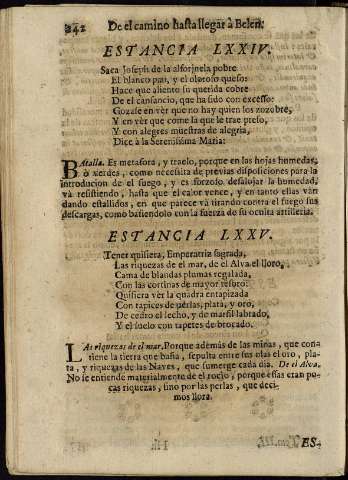 242 De el camino hasta llegar à Belen.
ESTANCIA LXXIV.
Saca Joseph de la alforjuela pobre
El blanco pan, y el oloroso queso:
Hace que aliento su querida cobre
De el cansancio, que ha sido con excesso:
Gozase en vèr que no hay quien los zozobre,
Y en vèr que come la que le trae preso,
Y con alegres muestras de alegria,
Dice à la Serenissima Maria:
BAtalla. Es metafora, y traelo, porque en las hojas humedas,
ò verdes, como necessita de previas disposiciones para la
introducion de el fuego, y es forzoso desalojar la humedad,
và resistiendo, hasta que el calor vence, y en tanto ellas vàn
dando estallidos, en que parece và tirando contra el fuego sus
descargas, como batiendolo con la fuerza de su oculta artilleria.
ESTANCIA LXXV.
Tener quisiera, Emperatriz sagrada,
Las riquezas de el mar, de el Alva el lloro,
Cama de blandas plumas regalada,
Con las cortinas de mayor tesoro:
Quisiera vèr la quadra entapizada
Con tapices de perlas, plata, y oro,
De cedro el lecho, y de marfil labrado,
Y el suelo con tapetes de brocado.
LAs riquezas de el mar. Porque además de las minas, que con-
tiene la tierra que baña, sepulta entre sus olas el oro, pla-
ta, y riquezas de las Naves, que sumerge cada dia. De el Alva.
No se entiende materialmente de el rocio, porque essas eran po-
cas riquezas, sino por las perlas, que deci-
mos llora.
ES-